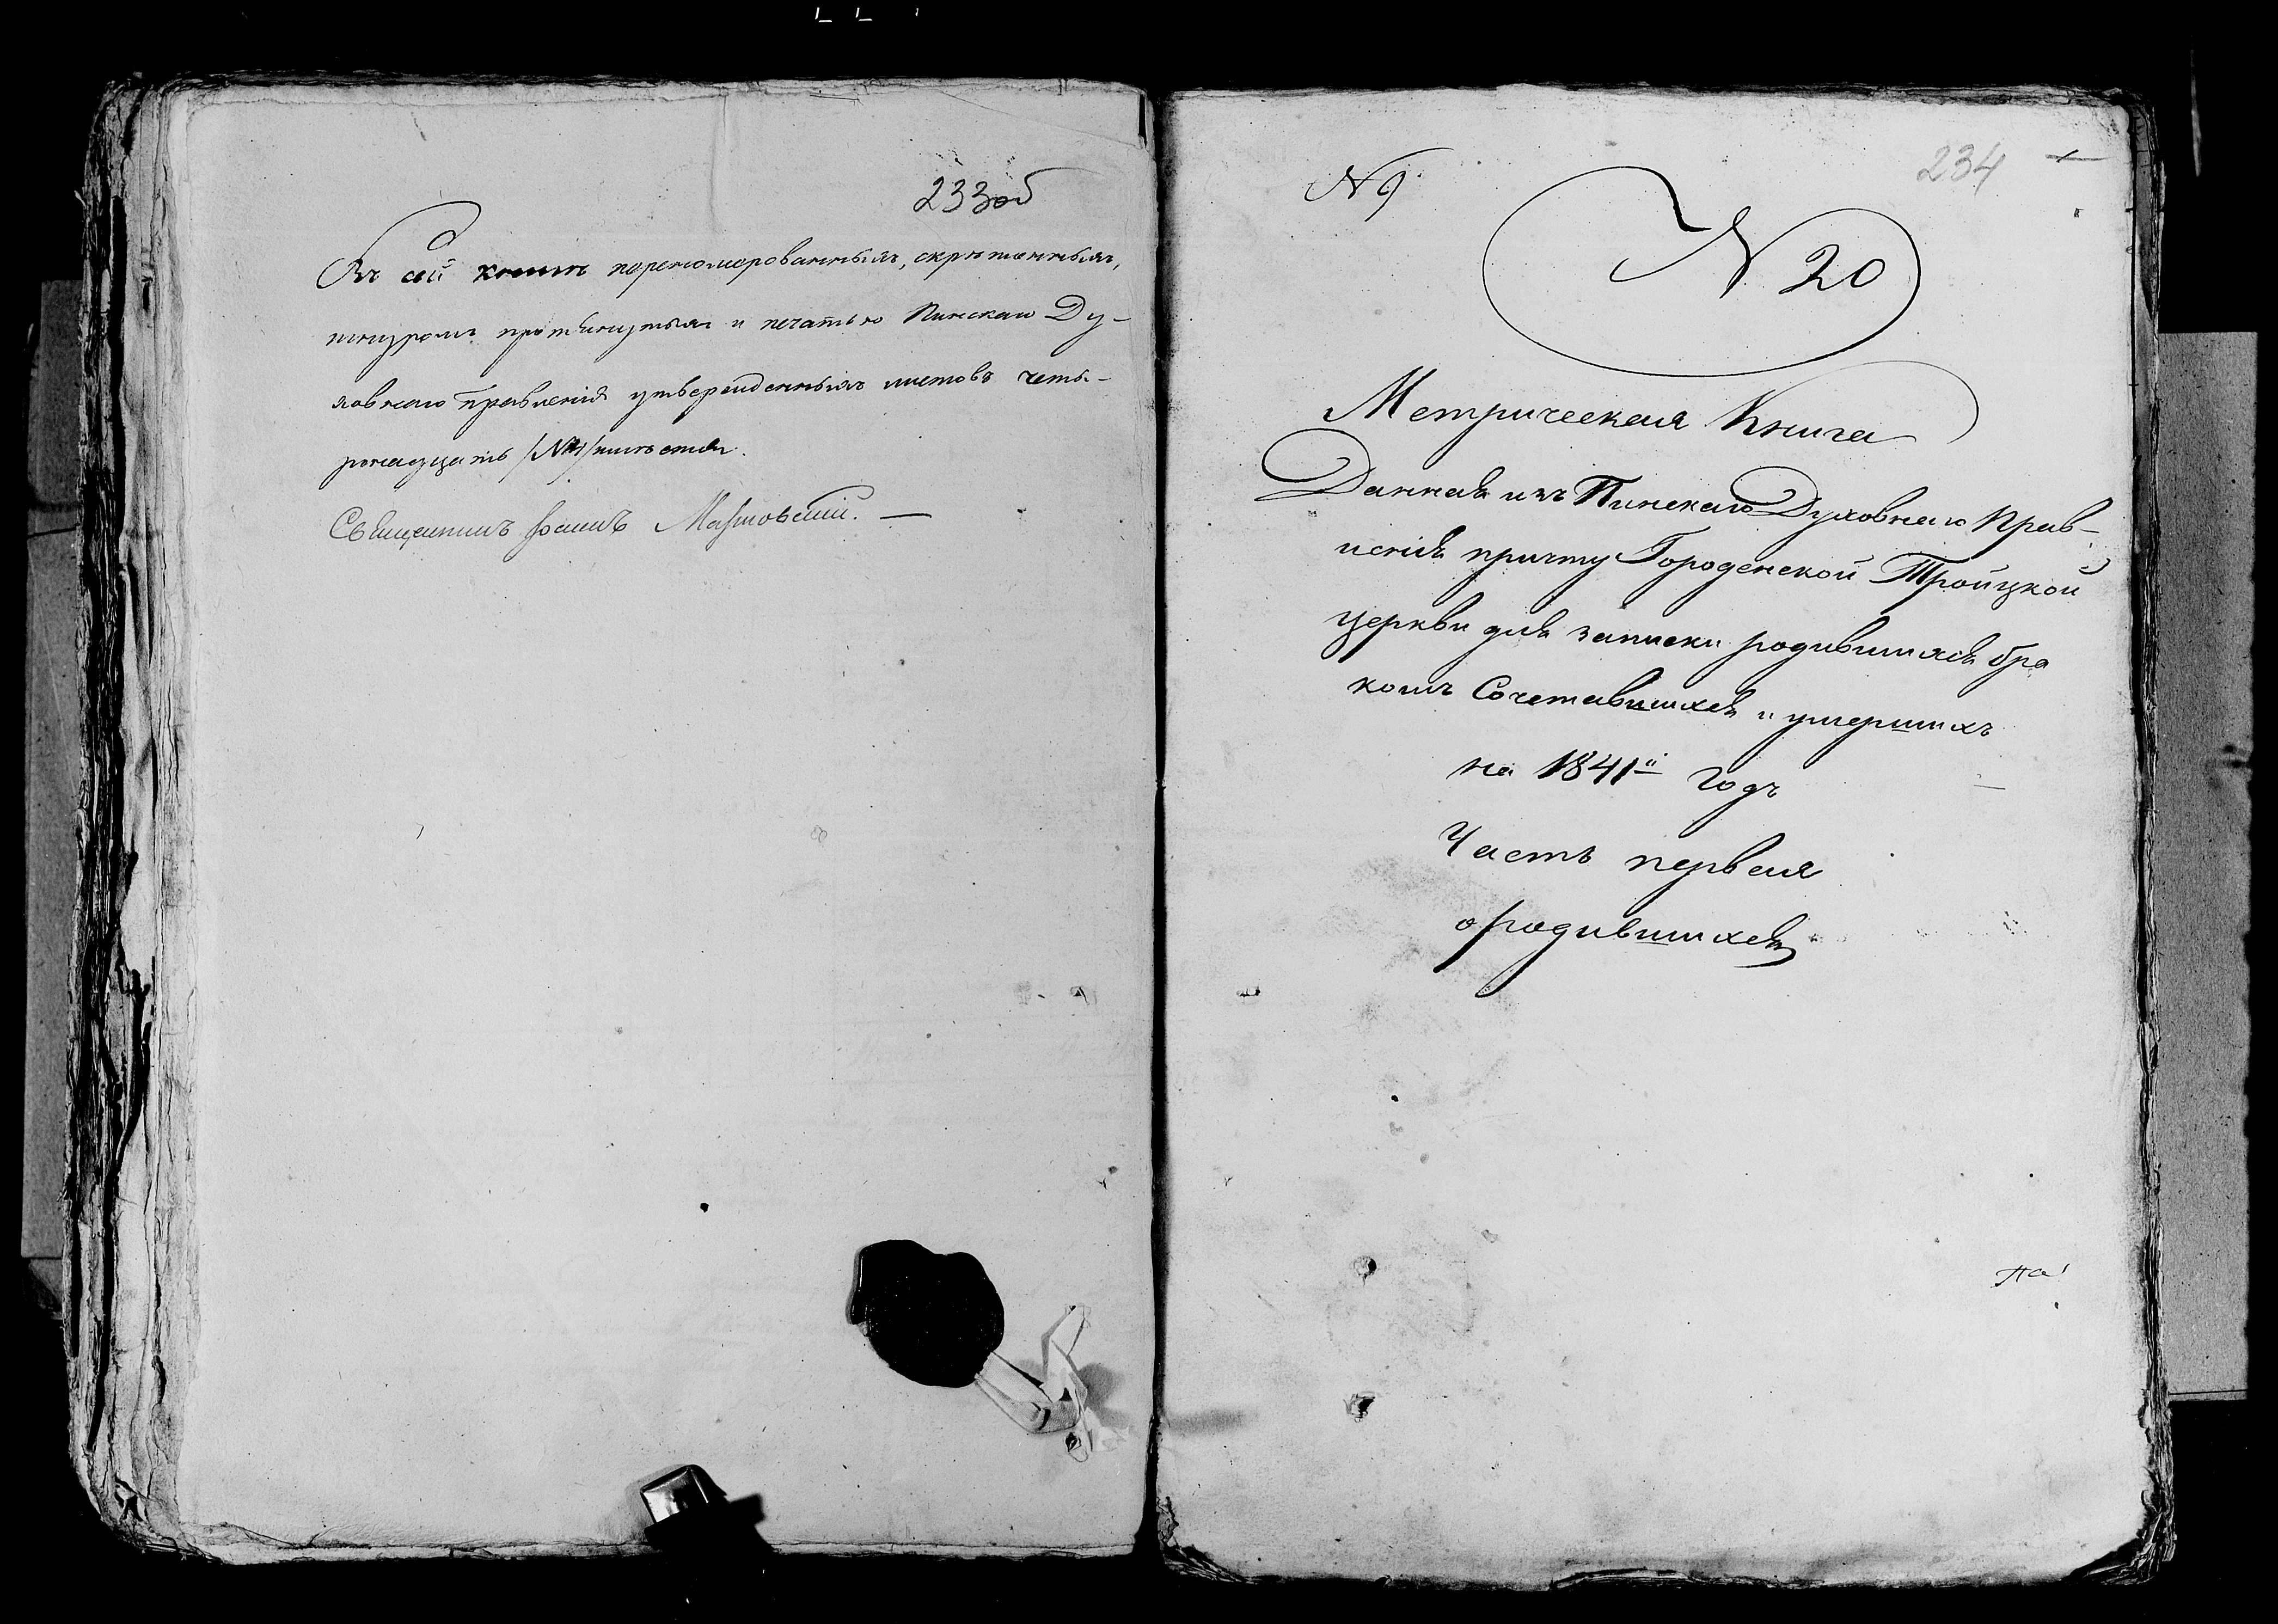 233об
Въ сей книгѣ перенумерованныхъ, скрѣпленныхъ,
шнуромъ протянутыхъ и печатью Пинскаго Ду-
ховнаго Правленія утвержденныхъ листовъ четы-
рнадцать
Священникъ Мартовскій. —
234
N 9
N 20
Метрическая Книга
Данная изъ Пинскаго Духовнаго Прав-
ленія причту Городенской Тройцкой
церкви для записки родившихся бра
комъ Сочетавшихся и умершихъ
на 1841й Годъ
Часть первая
о родившихся